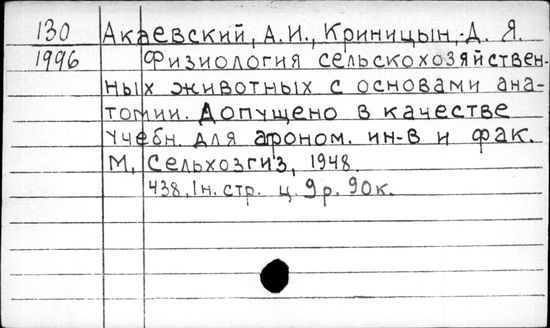 130 Акаевский, А.И., Криницын, Д. Я.
1996 Физиология сельскохозяйствен-
ных животных с основами ана-
томии. Допущено в качестве
учебн. для ароном. ин-в и фак.
М, Сельхозгиз, 1948.
438, 1н. стр. ц. 9р. 90к.